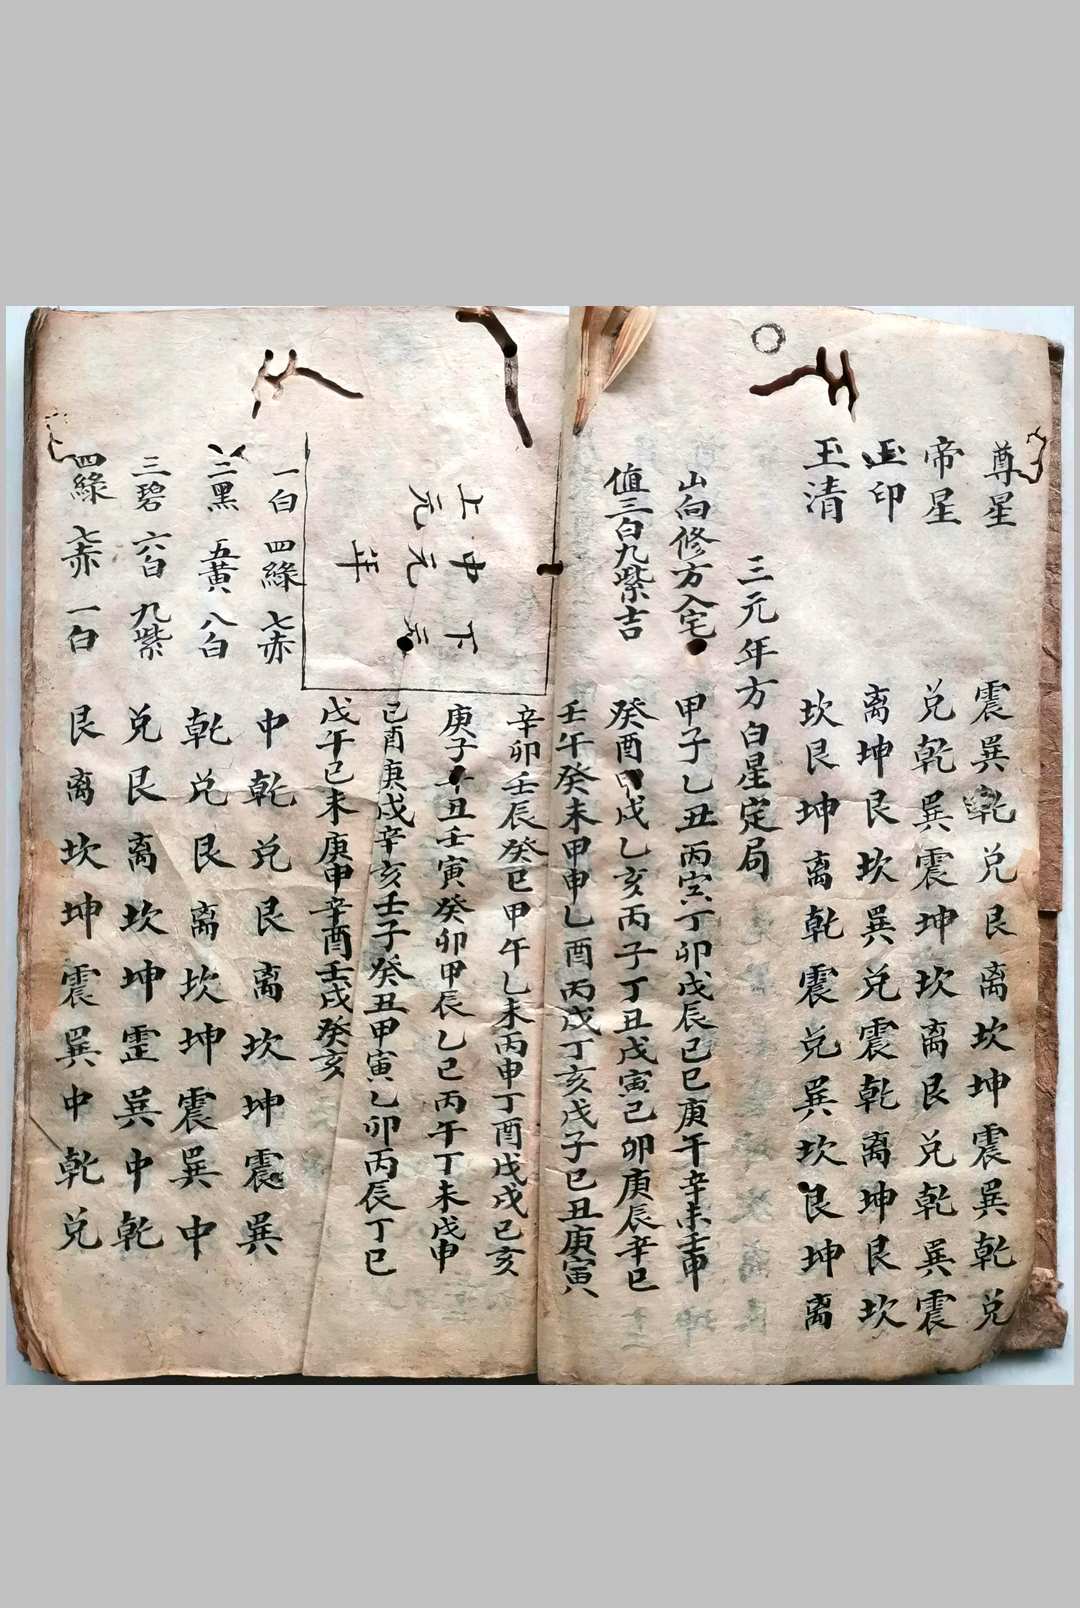 尊星 震巽乾兑艮离坎坤震巽乾兑
帝星 兑乾巽震坤坎离艮兑乾巽震
玉印 离坤艮坎巽兑震乾离坤艮坎
玉清 坎艮坤离乾震兑巽坎艮坤离
三元年方白星定局
山向修方入宅 甲子乙丑丙寅丁卯戊辰己巳庚午辛未壬申
值三白九紫吉 癸酉甲戌乙亥丙子丁丑戊寅己卯庚辰辛巳
壬午癸未甲申乙酉丙戌丁亥戊子己丑庚寅
辛卯壬辰癸巳甲午乙未丙申丁酉戊戌己亥
庚子辛丑壬寅癸卯甲辰乙巳丙午丁未戊申
己酉庚戌辛亥壬子癸丑甲寅乙卯丙辰丁巳
戊午己未庚申辛酉壬戌癸亥
上元
中元
下元
年
一白 四綠 七赤 中乾兑艮离坎坤震巽
二黑 五黄 八白 乾兑艮离坎坤震巽中
三碧 六白 九紫 兑艮离坎坤震巽中乾
四綠 七赤 一白 艮离坎坤震巽中乾兑